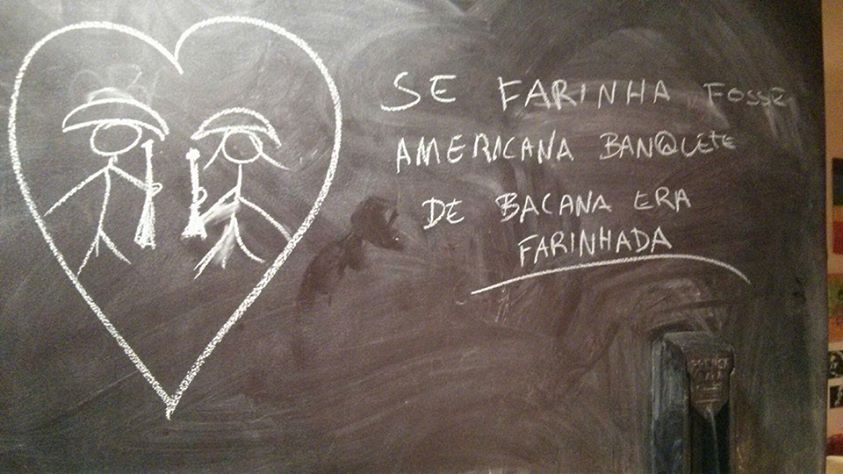 SE FARINHA FOSSE
AMERICANA BANQUETE
DE BACANA ERA
FARINHADA